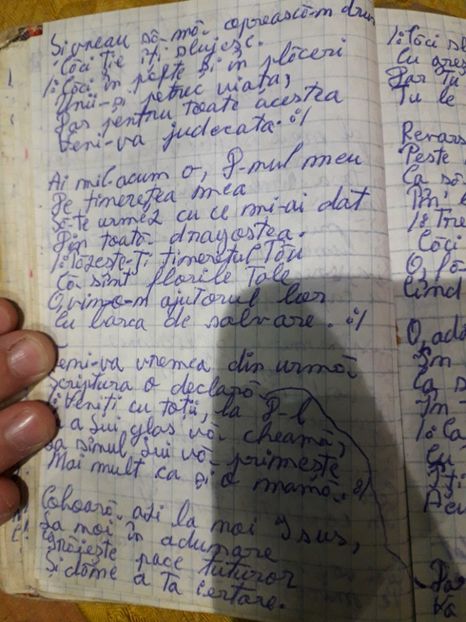 Și vreau să mă oprească-n drum
Căci Ție îți slujesc.
/: Căci în pofte și în plăceri
Unii-și petrec viața,
Dar pentru toate acestea
Veni-va judecata. :/
Ai milă acum o, D-mul meu
Pe tinerețea mea
Să-te urmez cu ce mi-ai dat
Din toată dragostea.
/: Păzește-ți tineretul Tău
Că sînt florile Tale
O, vino-n ajutorul lor
Cu barca de salvare. :/
Veni-va vremea din urmă
Scriptura o declară
Veniți cu toții, la D-l
a Lui glas vă cheamă,
La sînul Lui vă primește
Mai mult ca și o mamă. :/
Coboară azi la noi Isus,
La noi în adunare
pace tuturor
Și dăne a Ta iertare.
/: Căci
Cu
Dar Tu
Tu le
Revars
Peste
Ca să
Căci
Cînd
O, ad
Ca s
/: Ca
Cu